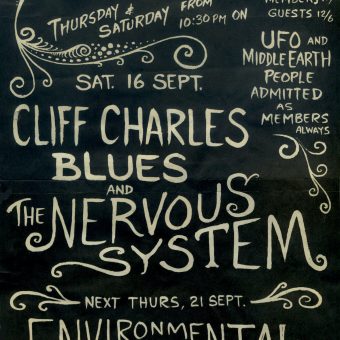 THURSDAY & SATURDAY FROM 10:30PM ON
GUESTS 12/6
UFO AND
MIDDLE EARTH
PEOPLE
ADMITTED
AS
MEMBERS
ALWAYS
SAT. 16 SEPT.
CLIFF CHARLES
BLUES
AND
THE NERVOUS
SYSTEM
NEXT THURS, 21 SEPT.
ENVIRONMENTAL